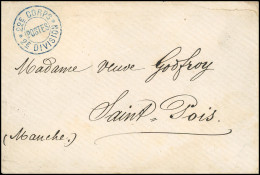 22E CORPS
POSTES
2E DIVISION
Madame veuve Godfroy
Saint-Pois.
(Manche.)